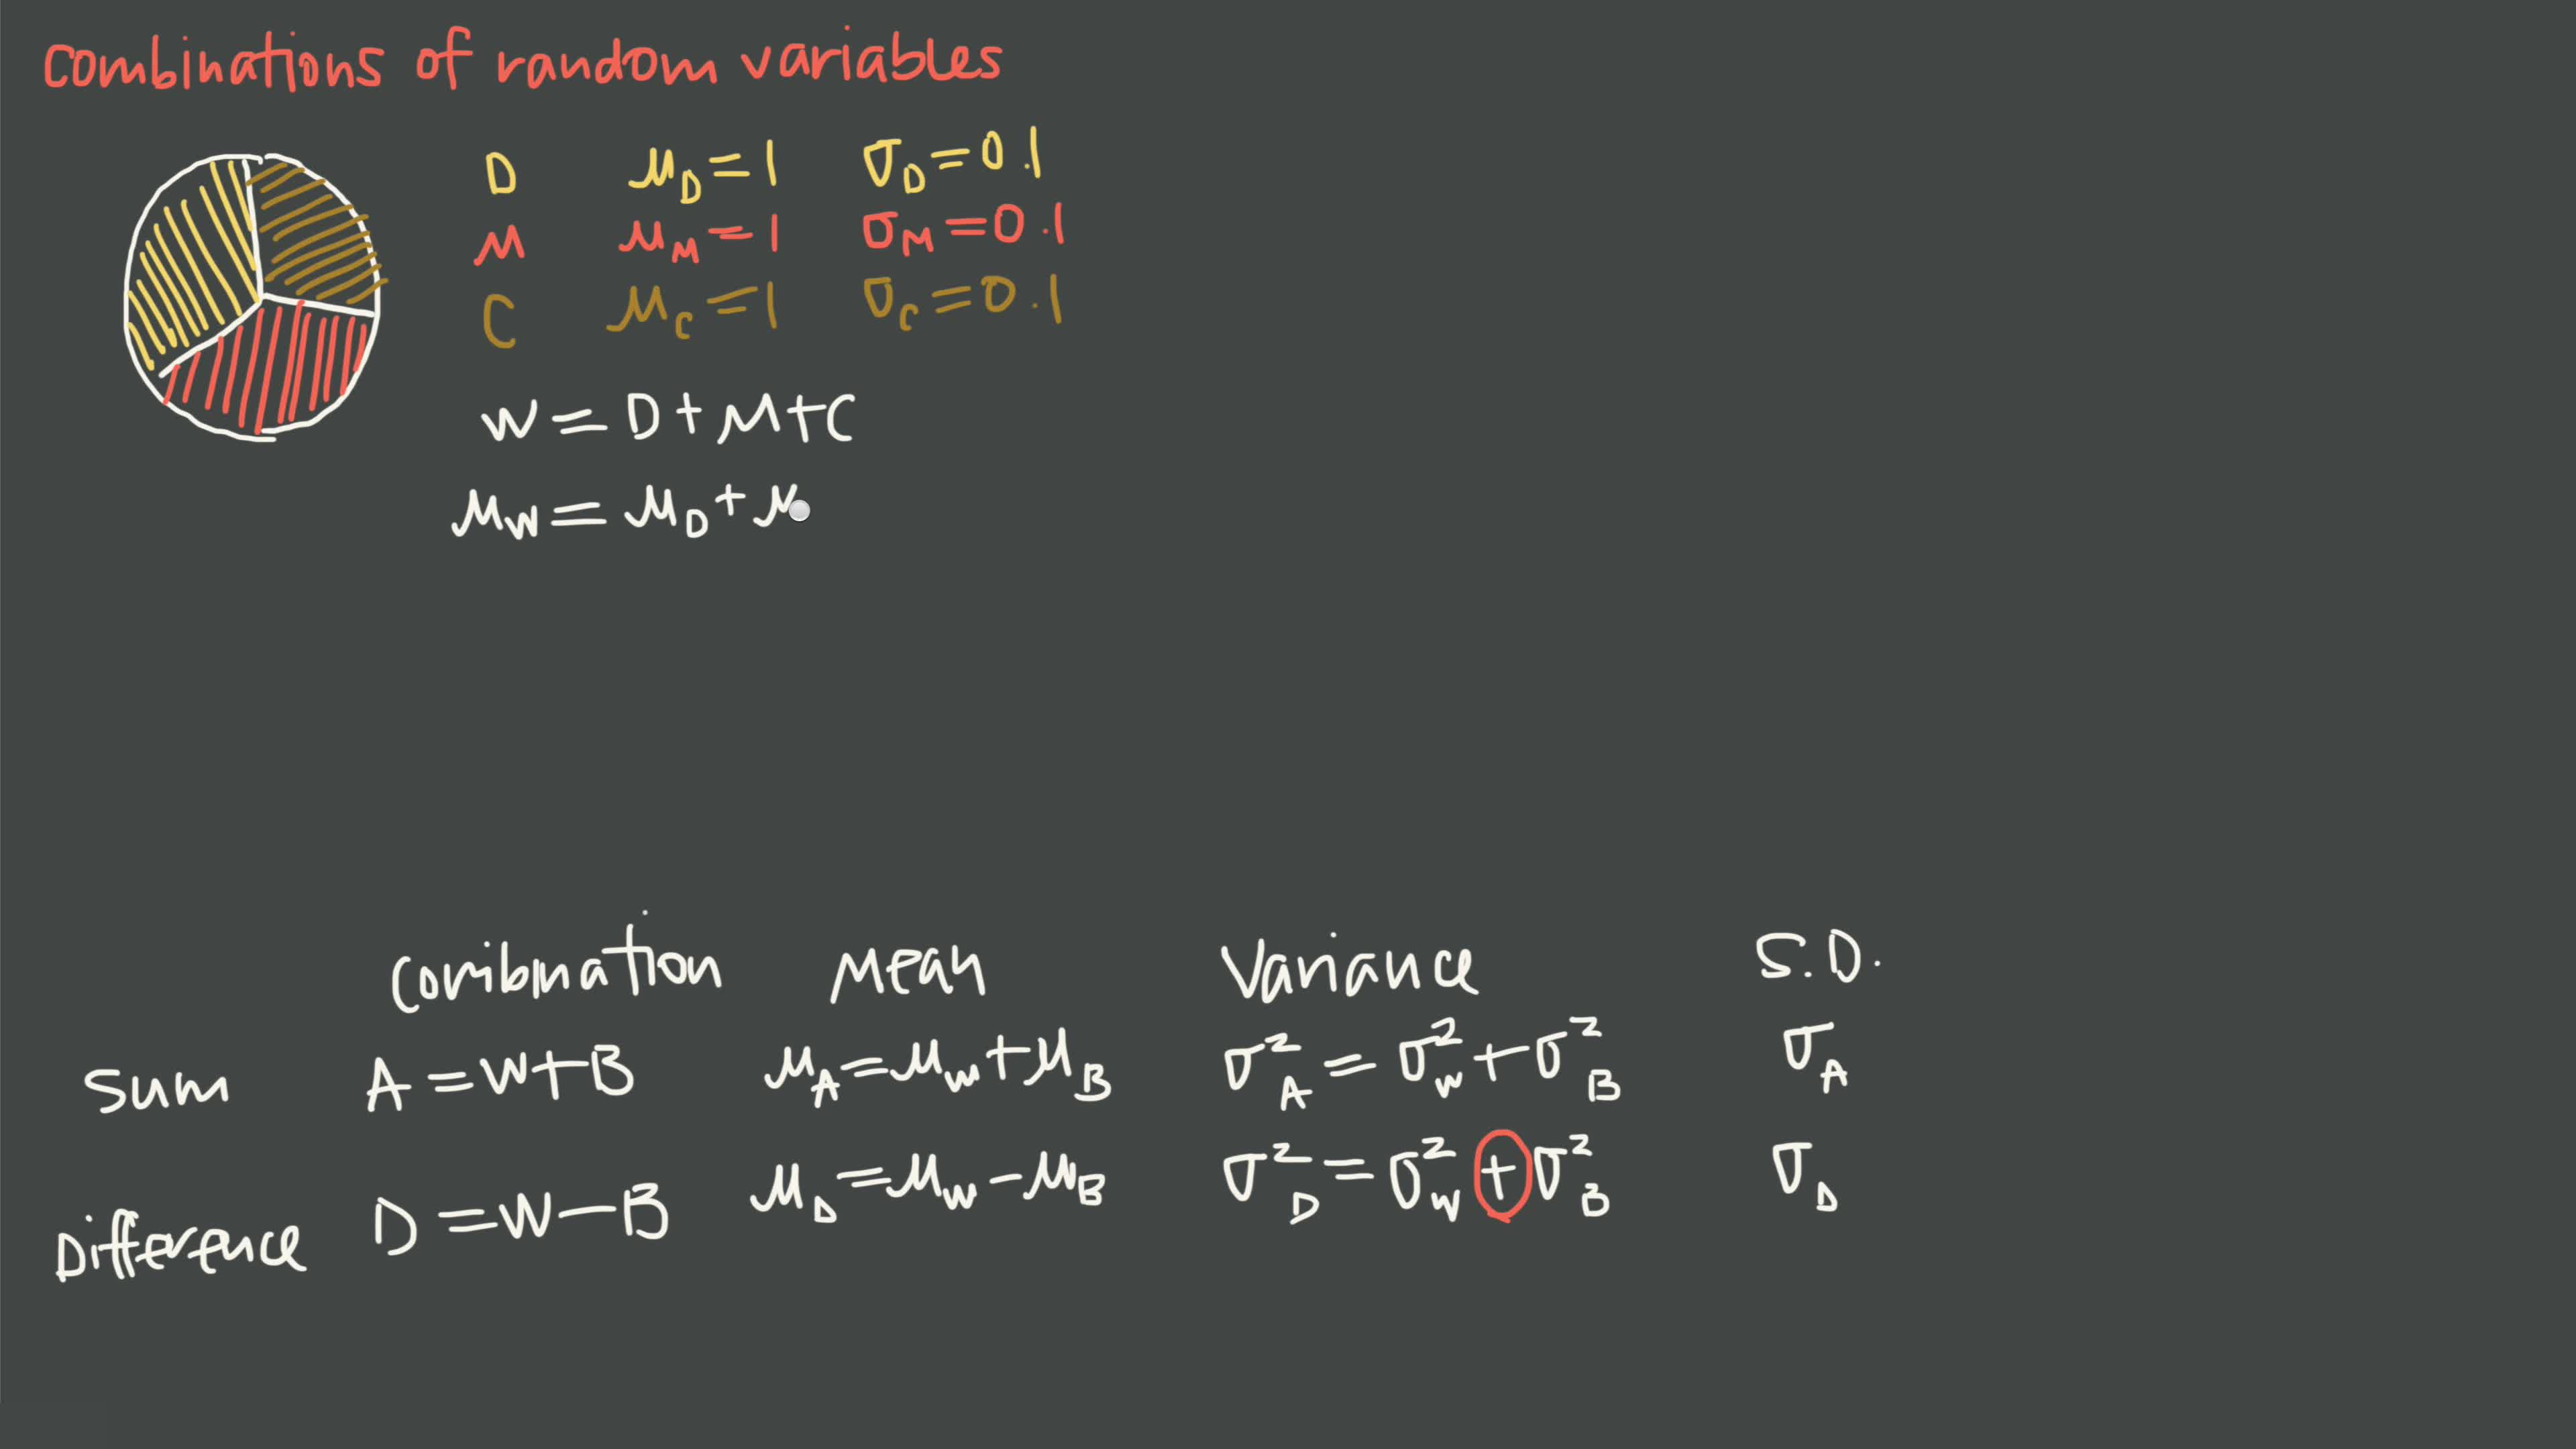 combinations of random variables
D μ_D = 1 σ_D = 0.1
M μ_M = 1 σ_M = 0.1
C μ_C = 1 σ_C = 0.1
W = D + M + C
μ_W = μ_D + μ
Combination Mean Variance S.D.
Sum A = W + B μ_A = μ_W + μ_B σ²_A = σ²_W + σ²_B σ_A
Difference D = W − B μ_D = μ_W − μ_B σ²_D = σ²_W + σ²_B σ_D